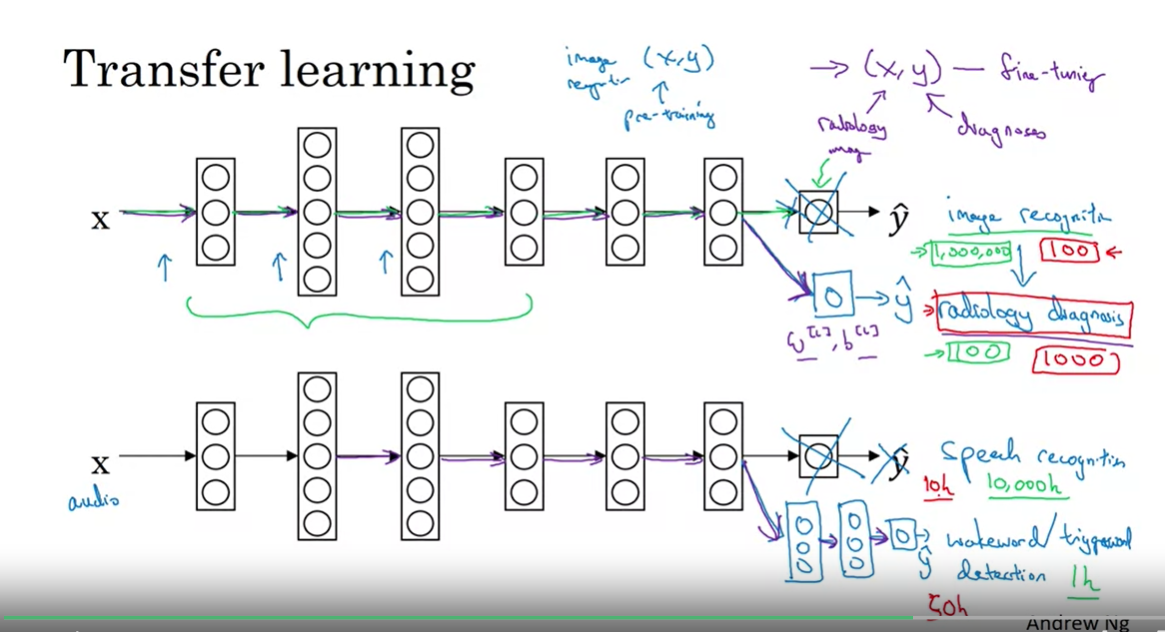 Transfer learning
image (x,y)
pre-training
→ (x,y) — fine-tuning
radiology
image
diagnoses
x
ŷ
image recognition
→ 1,000,000
100 ←
→ ŷ
radiology diagnosis
w[L], b[L]
→ 100
1000
x
audio
ŷ
speech recognition
10h 10,000h
ŷ
wakeword/triggerword
detection 1h
50h
Andrew Ng